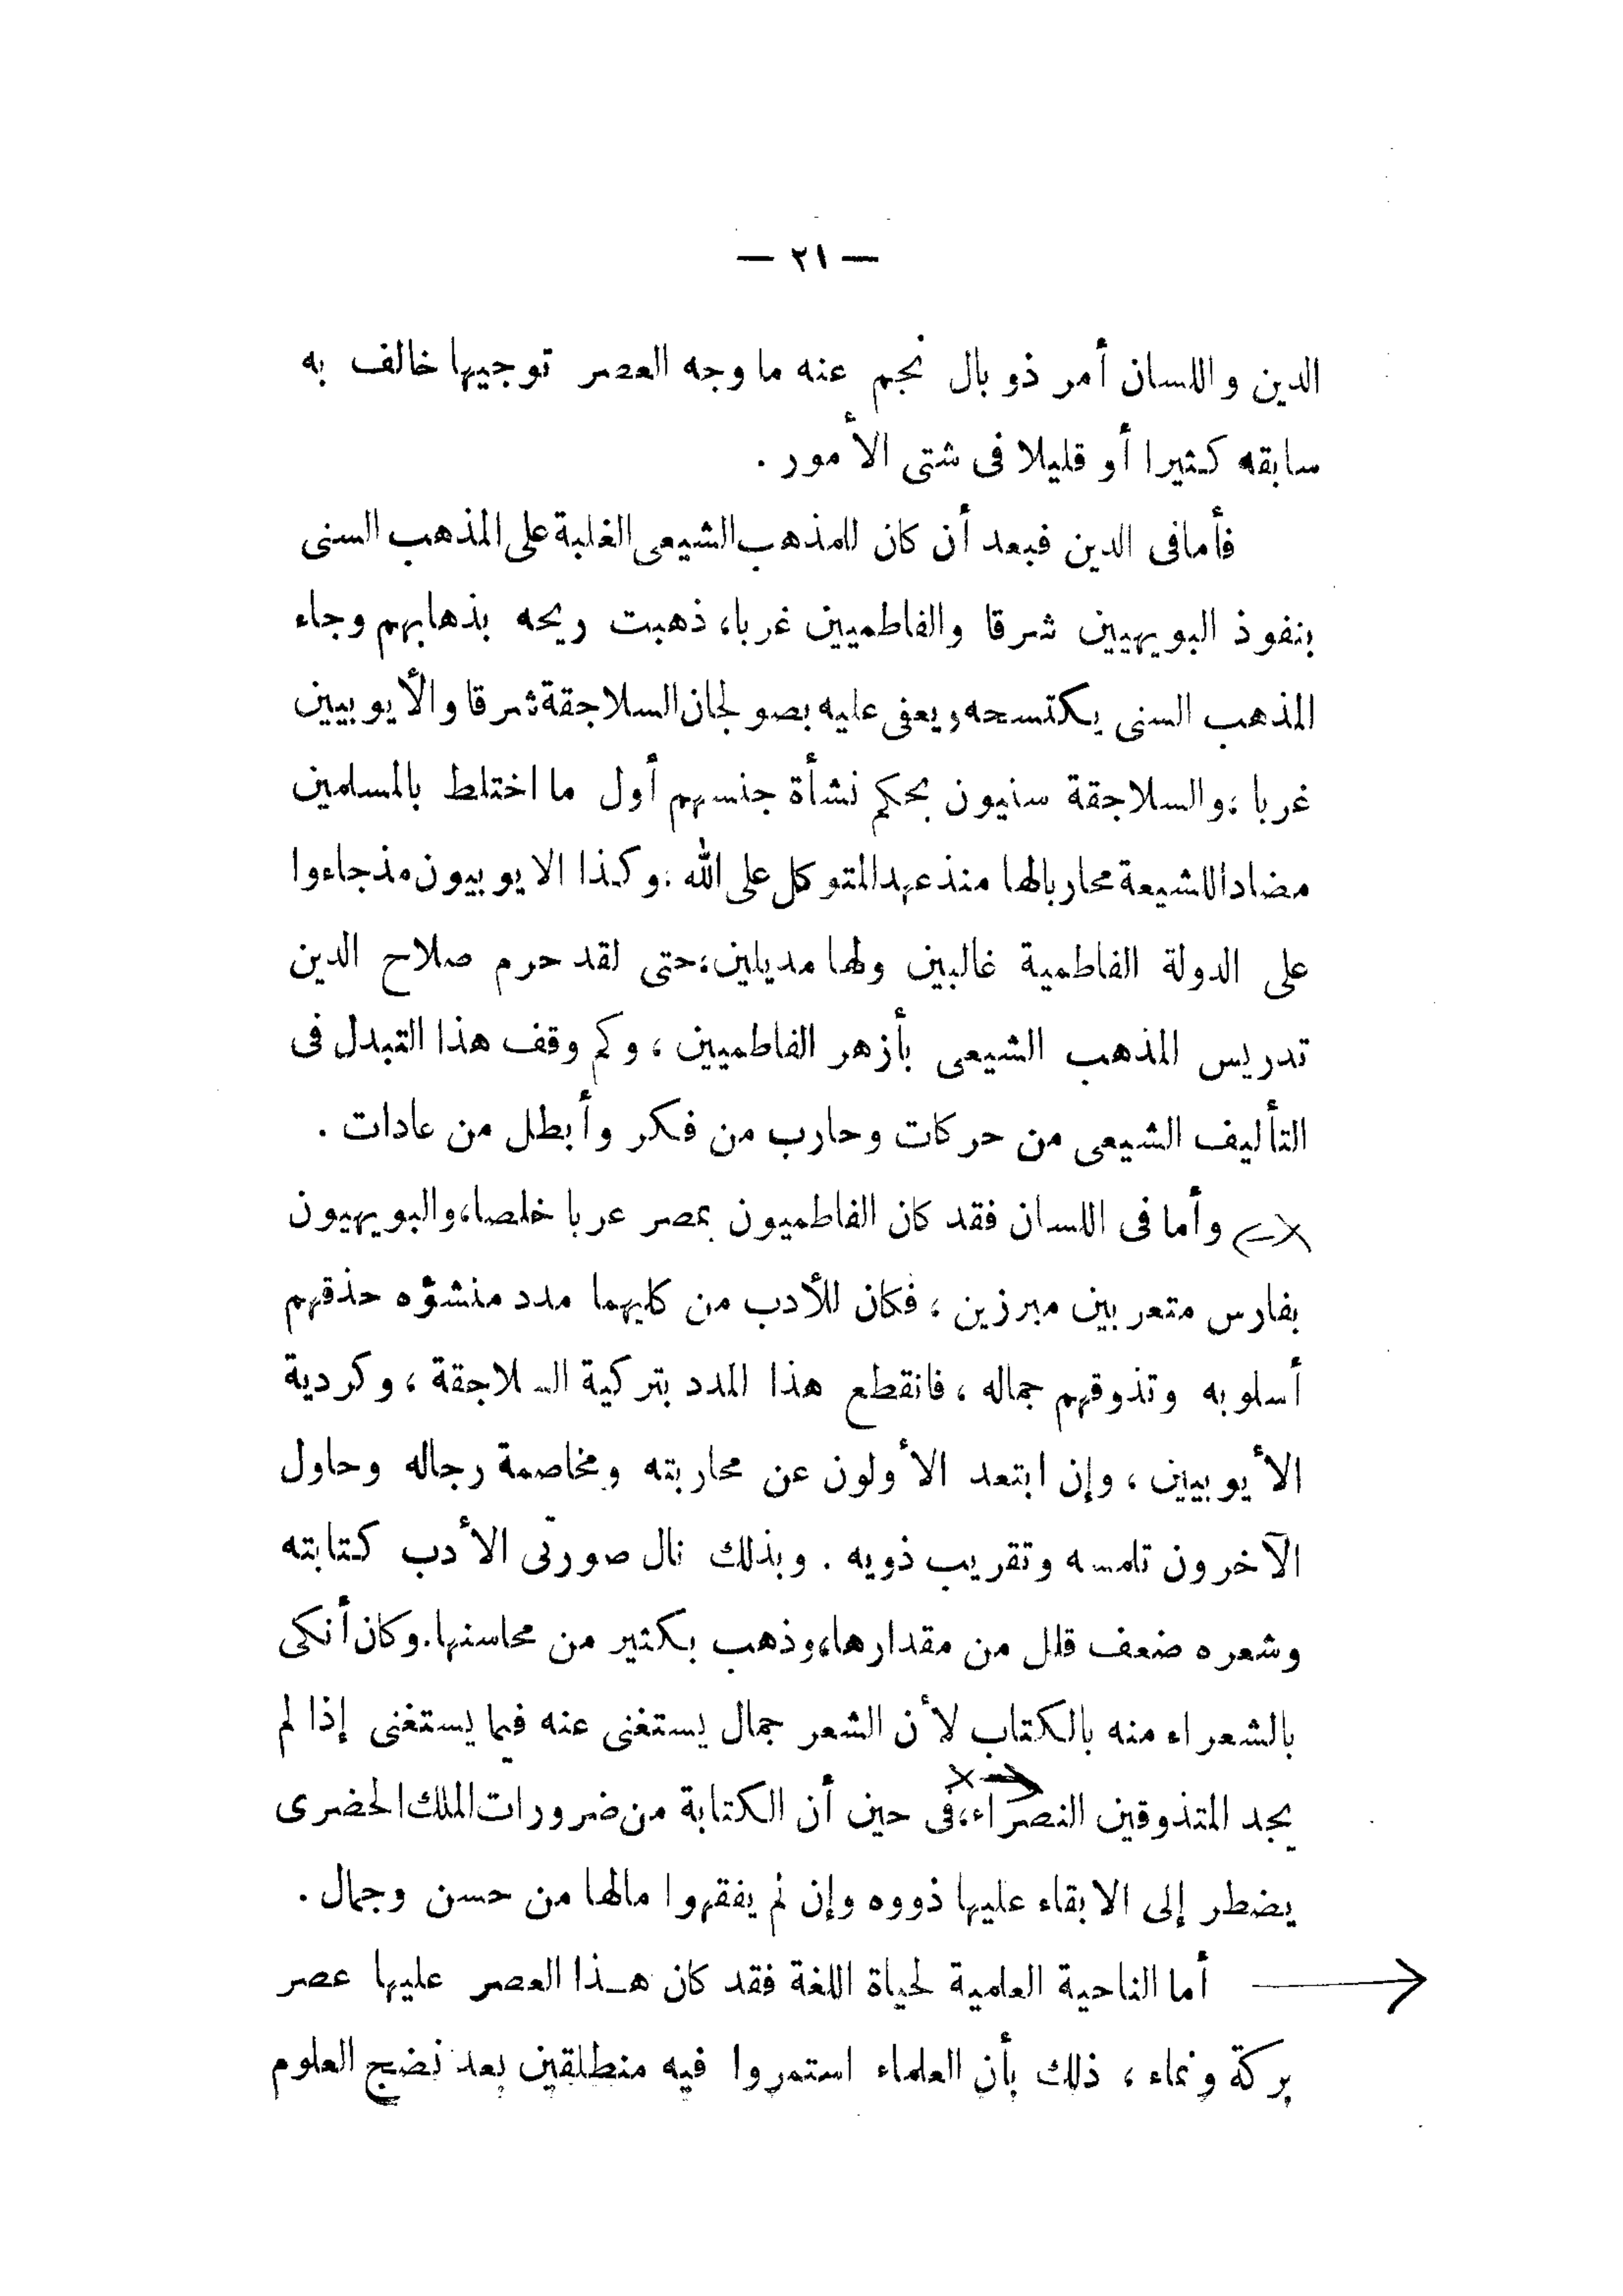 — ٢١ —
الدين واللسان أمر ذو بال نجم عنه ما وجه العصر توجيها خالف به
سابقه كثيرا أو قليلا فى شتى الأمور .
فأما فى الدين فبعد أن كان للمذهب الشيعى الغلبة على المذهب السنى
بنفوذ البويهيين شرقا والفاطميين غربا، ذهبت ريحه بذهابهم وجاء
المذهب السنى يكتسحه ويعفى عليه بصولجان السلاجقة شرقا والأيوبيين
غربا ؛ والسلاجقة سنيون بحكم نشأة جنسهم أول ما اختلط بالمسلمين
مضادا للشيعة محاربا لها منذ عهد المتوكل على الله ؛ وكذا الايوبيون مذ جاءوا
على الدولة الفاطمية غالبين ولها مديلين؛ حتى لقد حرم صلاح الدين
تدريس المذهب الشيعى بأزهر الفاطميين ، وكم وقف هذا التبدل فى
التأليف الشيعى من حركات وحارب من فكر وأبطل من عادات .
وأما فى اللسان فقد كان الفاطميون بمصر عربا خلصا، والبويهيون
بفارس متعربين مبرزين ، فكان للأدب من كليهما مدد منشؤه حذقهم
أسلوبه وتذوقهم جماله ، فانقطع هذا المدد بتركية السلاجقة ، وكردية
الأيوبيين ، وإن ابتعد الأولون عن محاربته ومخاصمة رجاله وحاول
الآخرون تلمسه وتقريب ذويه . وبذلك نال صورتى الأدب كتابته
وشعره ضعف قلل من مقدارها، وذهب بكثير من محاسنها. وكان أنكى
بالشعراء منه بالكتاب لأن الشعر جمال يستغنى عنه فيما يستغنى إذا لم
يجد المتذوقين النصراء، فى حين أن الكتابة من ضرورات الملك الحضرى
يضطر إلى الابقاء عليها ذووه وإن لم يفقهوا مالها من حسن وجمال .
أما الناحية العلمية لحياة اللغة فقد كان هـذا العصر عليها عصر
بركة ونماء ، ذلك بأن العلماء استمروا فيه منطلقين بعد نضج العلوم